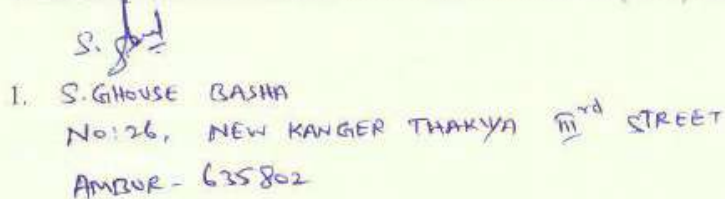 S.
1. S. GHOUSE BASHA
No: 26, NEW KANGER THAKWA IIIrd STREET
AMBUR - 635802